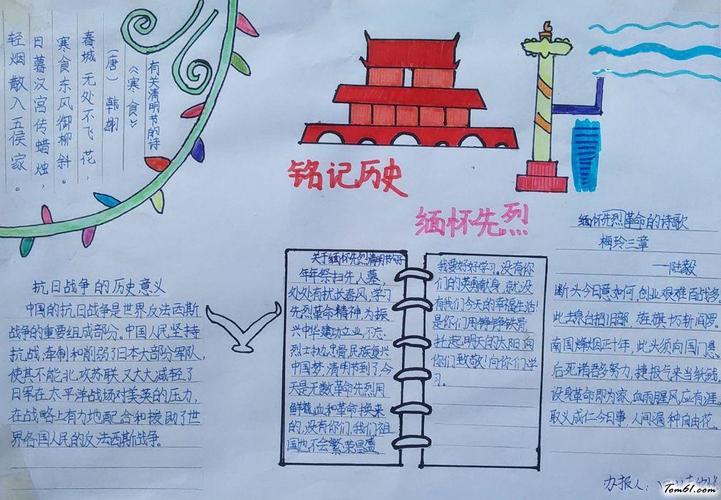 有关清明节的诗
《寒食》
(唐) 韩翃
春城无处不飞花，
寒食东风御柳斜。
日暮汉宫传蜡烛，
轻烟散入五侯家。
铭记历史
缅怀先烈
抗日战争的历史意义
中国的抗日战争是世界反法西斯
战争的重要组成部分。中国人民坚持
抗战，牵制和削弱了日本大部分军队，
使其不能北攻苏联，又大大减轻了
日军在太平洋战场对美英的压力，
在战略上有力地配合和援助了世
界各国人民的反法西斯战争。
关于缅怀先烈清明节的
年年祭扫先人墓，
处处有扰大春风，学习
先烈革命精神为振
兴中华建功立业，不忘
烈士 民族复兴
中国梦，清明节到了今
天是无数革命先烈用
鲜 血和革命 换来
的，没有你们，我们祖
国也不会繁荣昌盛
我要好好学习，没有你
们的英勇献身，就没
有我们今天的幸福生活！
是你们用
托起明天的太阳向
你们致敬！向你们学
习。
缅怀先烈革命的诗歌
梅玲三章
——陆毅
断头今日意如何，创业艰难百战多
此去泉台招旧部，旌旗 斩阎罗
南国烽烟正十年，此头须向国门悬
后死诸君多努力，捷报飞来当纸钱
设身革命即为家，血雨腥风应有涯
取义成仁今日事，人间遍种自由花。
办报人：
Tom61.com